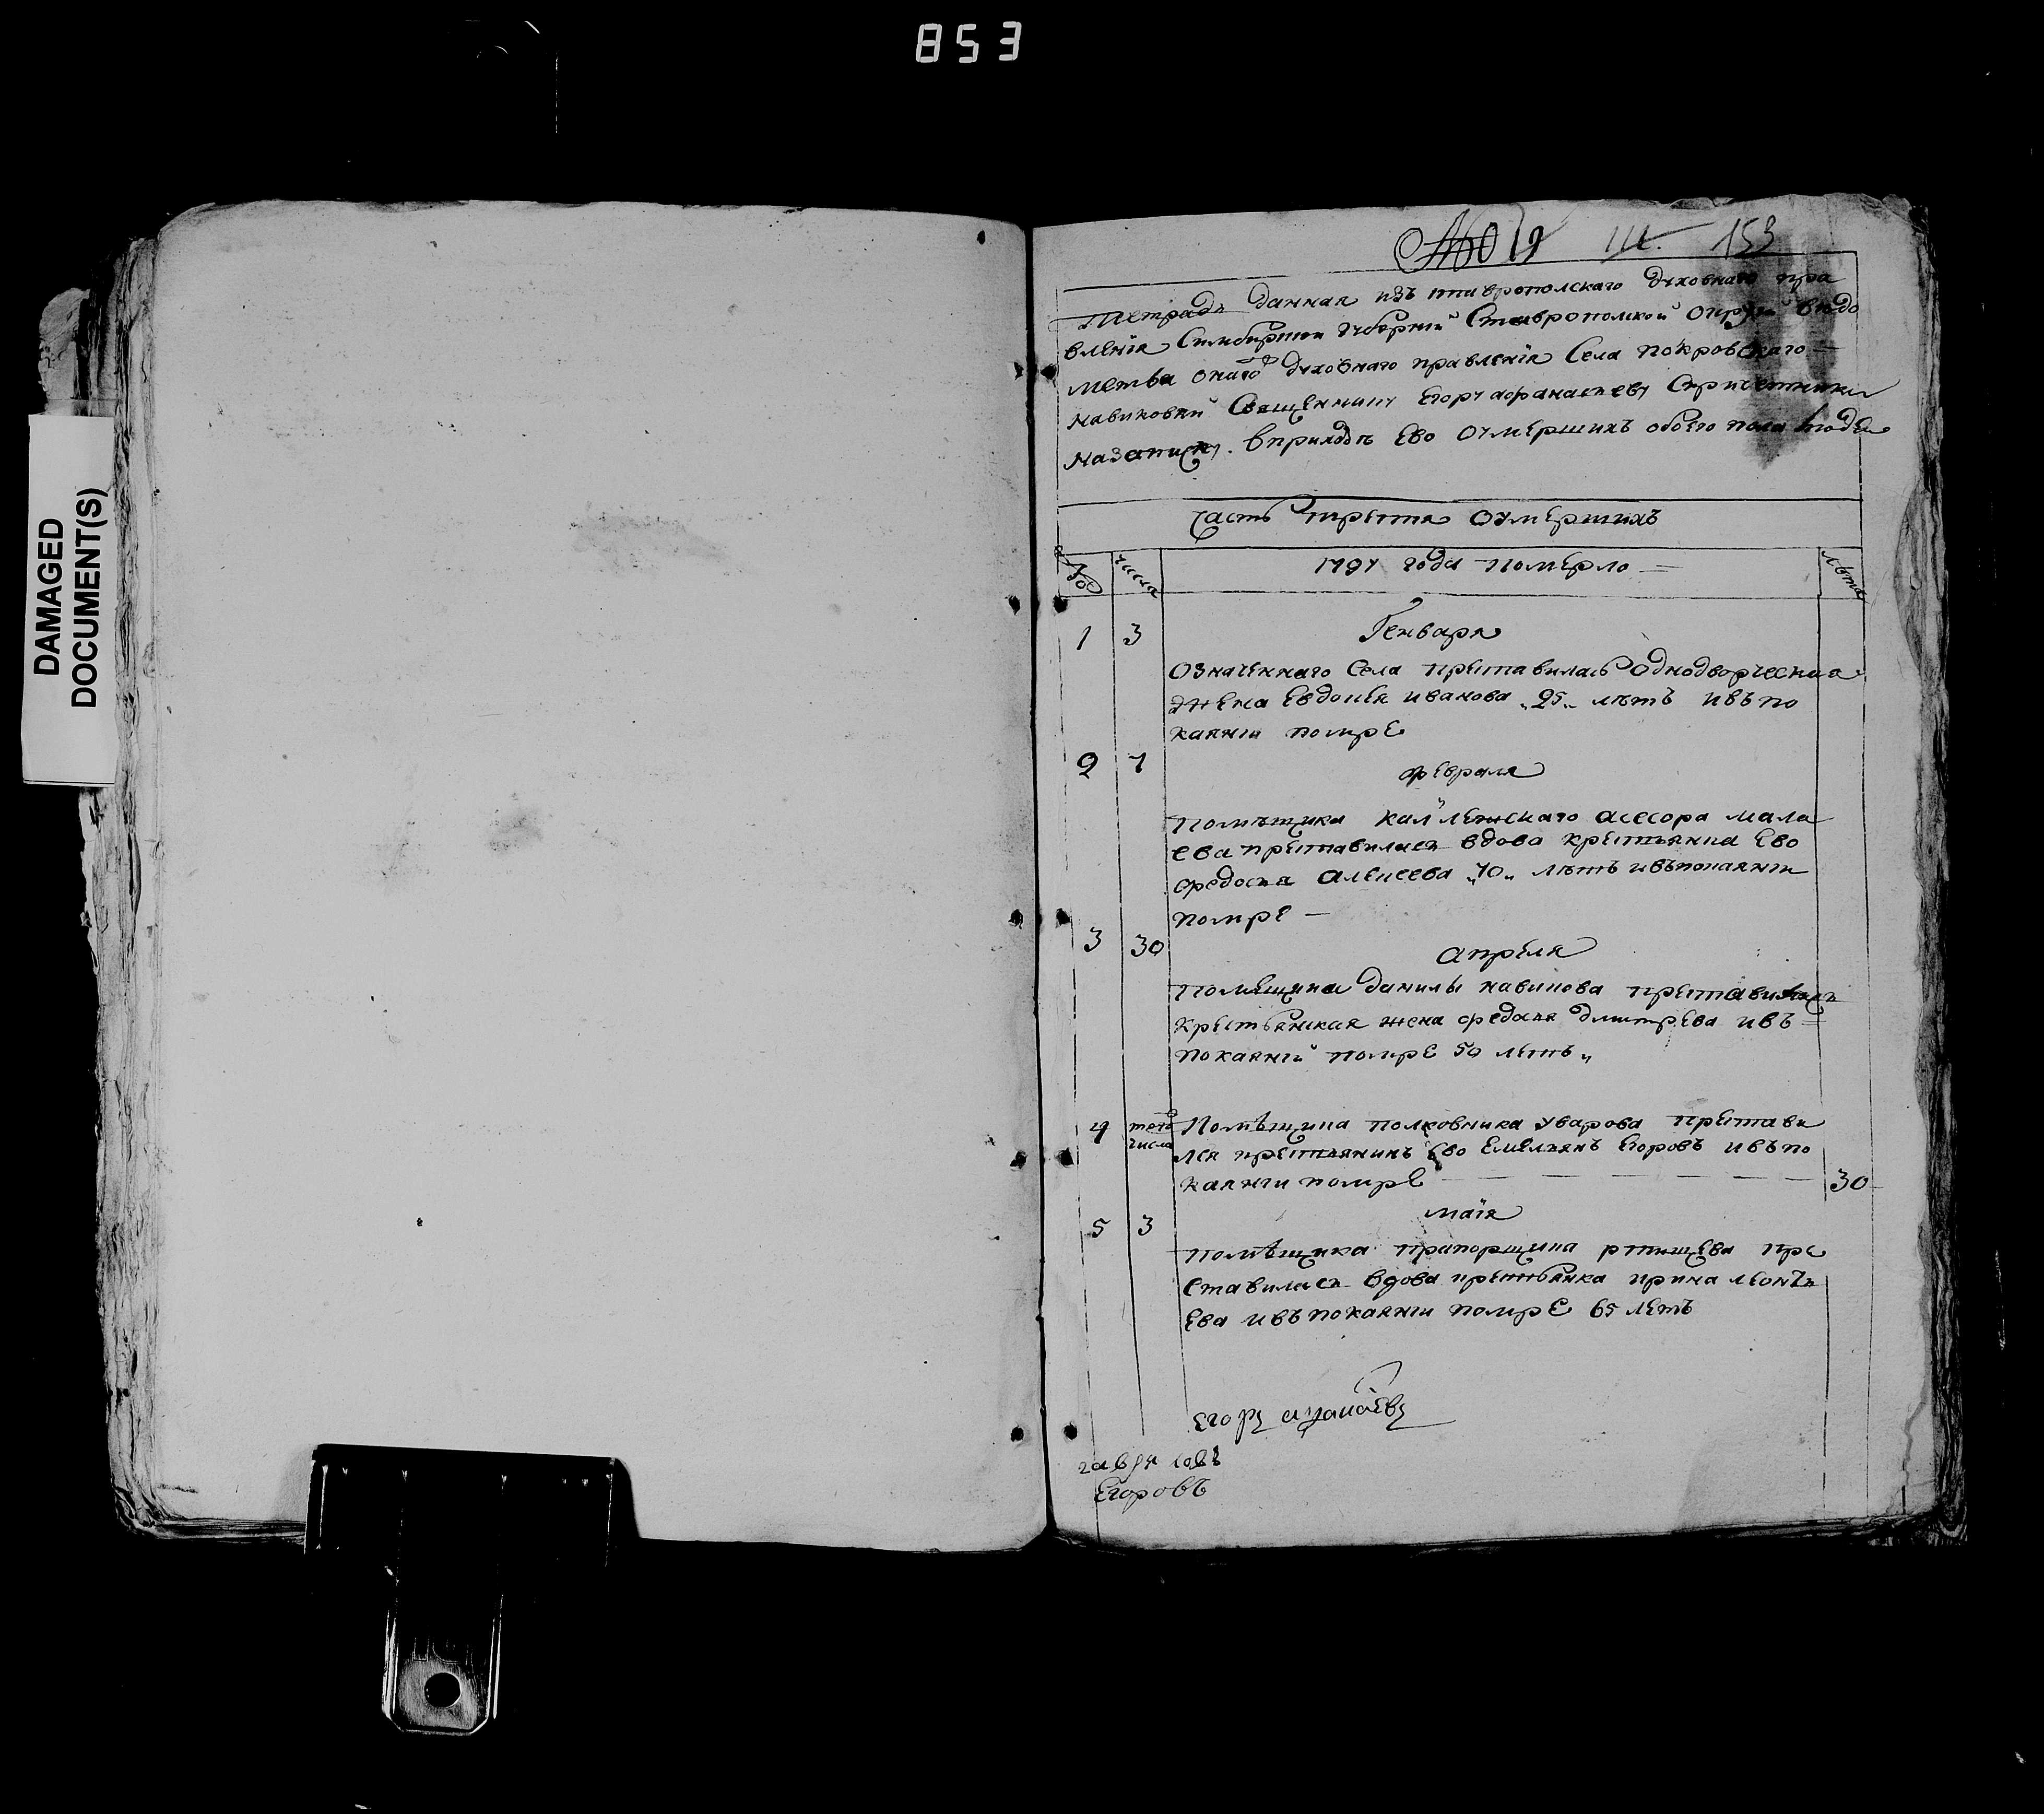 853
DAMAGED
DOCUMENT(S)
153
Тетрадь данная изъ ставропольскаго духовнаго пра
вленïя Симбирской губернïи Ставропольской округи ведо
мства онаго духовнаго правленïя Села покровскаго
навиковки Священнику Егору афанасьеву Спричетники
на записку. вприходѣ Ево Оумершихъ обоего пола людей
Часть третïя Оумершихъ
числа 1797 года померло лѣта
Генваря
1 3
Означеннаго Села преставилась Однодворческая
жена Евдокея иванова „25„ лѣтъ ивъ по
каянïи помре
2 7 февраля
помѣщика каллежскаго асесора мала
ева преставилася вдова крестьянка Ево
федосья алексеева „70„ лѣтъ ивъпокаянïи
помре —
3 30 апреля
помещика данилы навикова преставилась
крестьянская жена федосья дмитрева ивъ
покаянïи помре 50 летъ„
4 того числа Помѣщика полковника уварова престави
лся крестьянинъ Ево Емельянъ Егоровъ ивъ по
каянïи помре 30
маïя
5 3
помѣщика прапорщика ртищева пре
ставилась вдова крестьянка ирина леонть
ева ивъ покаянïи помре 65 летъ
Егоровъ